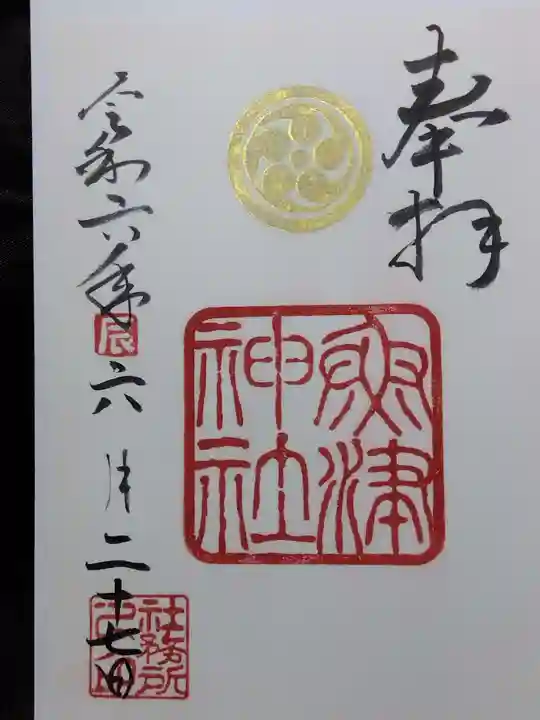 奉拝
魚津
神社
令和六年
辰
六月二十七日
社務所
之印